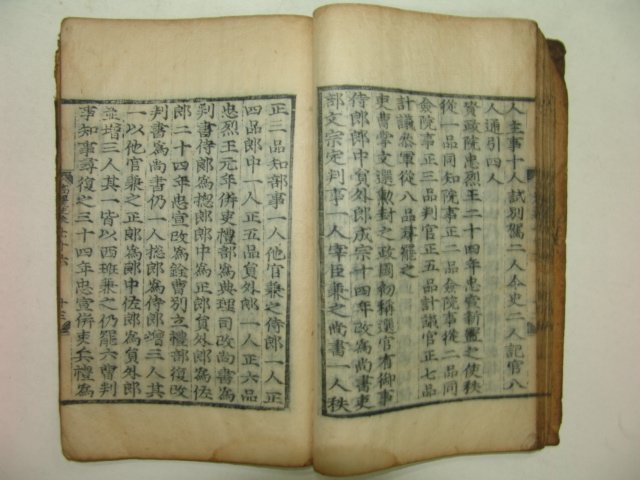 人主事十人試別駕二人令史二人記官八
人通引四人
資政院忠烈王二十四年忠宣新置之使秩
從一品同知院事正二品僉院事從二品同
僉院事正三品判官正五品計議官正七品
計議叅軍從八品尋罷之
吏曹掌文選勳封之政國初稱選官有御事
侍郎郎中員外郎成宗十四年改爲尙書吏
部文宗定判事一人宰臣兼之尙書一人秩
正三品知部事一人他官兼之侍郎一人正
四品郎中一人正五品員外郎一人正六品
忠烈王元年併吏禮部爲典理司改尙書爲
判書侍郎爲摠郎郎中爲正郎員外郎爲佐
郎二十四年忠宣改爲銓曹別立禮部復改
判書爲尙書仍一人摠郎爲侍郎增三人其
一以他官兼之正郎爲郎中佐郎爲員外郎
並增三人其一皆以西班兼之仍罷六曹判
事知事尋復之三十四年忠宣併吏兵禮爲